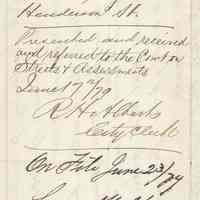 Henderson St.
Presented and received
and referred to the Com. on
Streets & Assessments
June 17th/79
City Clerk
On File June 23/79